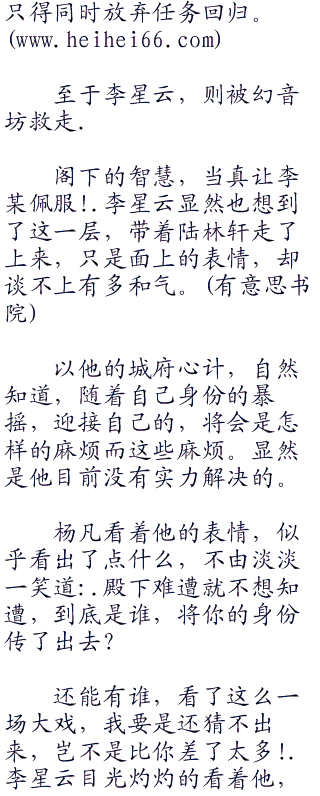 只得同时放弃任务回归。
(www.heihei66.com)
至于李星云，则被幻音
坊救走.
阁下的智慧，当真让李
某佩服!.李星云显然也想到
了这一层，带着陆林轩走了
上来，只是面上的表情，却
谈不上有多和气。(有意思书
院)
以他的城府心计，自然
知道，随着自己身份的暴
摇，迎接自己的，将会是怎
样的麻烦而这些麻烦。显然
是他目前没有实力解决的。
杨凡看着他的表情，似
乎看出了点什么，不由淡淡
一笑道:.殿下难遭就不想知
遭，到底是谁，将你的身份
传了出去?
还能有谁，看了这么一
场大戏，我要是还猜不出
来，岂不是比你差了太多!.
李星云目光灼灼的看着他，